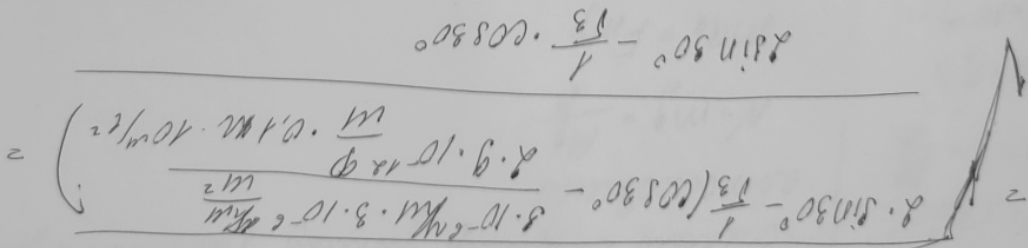 = √ 2·sin30° - 1/√3 (cos30° - (3·10⁻⁶ Кл/м · 3·10⁻⁶ Кл/м²)/(2·9·10⁻¹² Ф/м · 0,1 м · 10 м/с²)) =
2sin30° - 1/√3 · cos30°